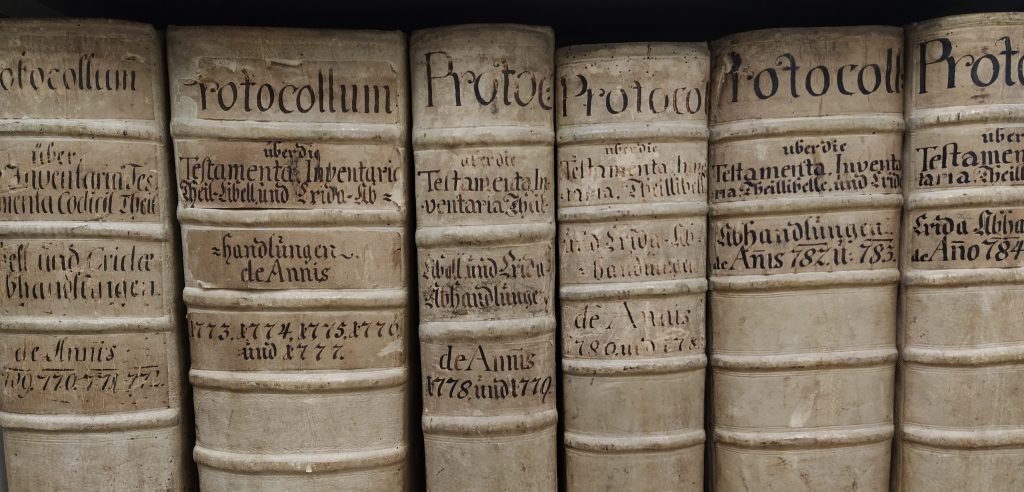 otocollum
über
Inventaria Tes
menta Codicil Theil
bell und Cridæ
bhandlungen
de Annis
769. 770. 771. 772.
rotocollum
über die
Testamenta Inventaric
Theil-Libell, und Crida-Ab=
=handlüngen
de Annis
1773. 1774. 1775. 1776
und 1777.
Protoc
über die
Testamenta In
ventaria Theil
Libell und Crida
Abhandlüngen
de Annis
1778 und 1779.
Protocol
über die
Testamenta Inve
ntaria, Theillibell
und Crida-Ab=
handlungen
de Annis
1780. und 178
Protocoll
über die
Testamenta, Inventa
ria, Theillibelle, und Crid
Abhandlüngen
de Anis 782. u: 783.
Proto
über
Testamen
taria, Theillib
Crida Abha
de Año 784